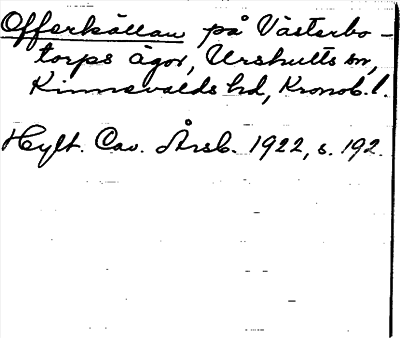 Offerkällan på Västerbo-
torps ägor, Urshults sn,
Kinnevalds hd, Kronob. l.
Hylt. Cav. Årsb. 1922, s. 192.